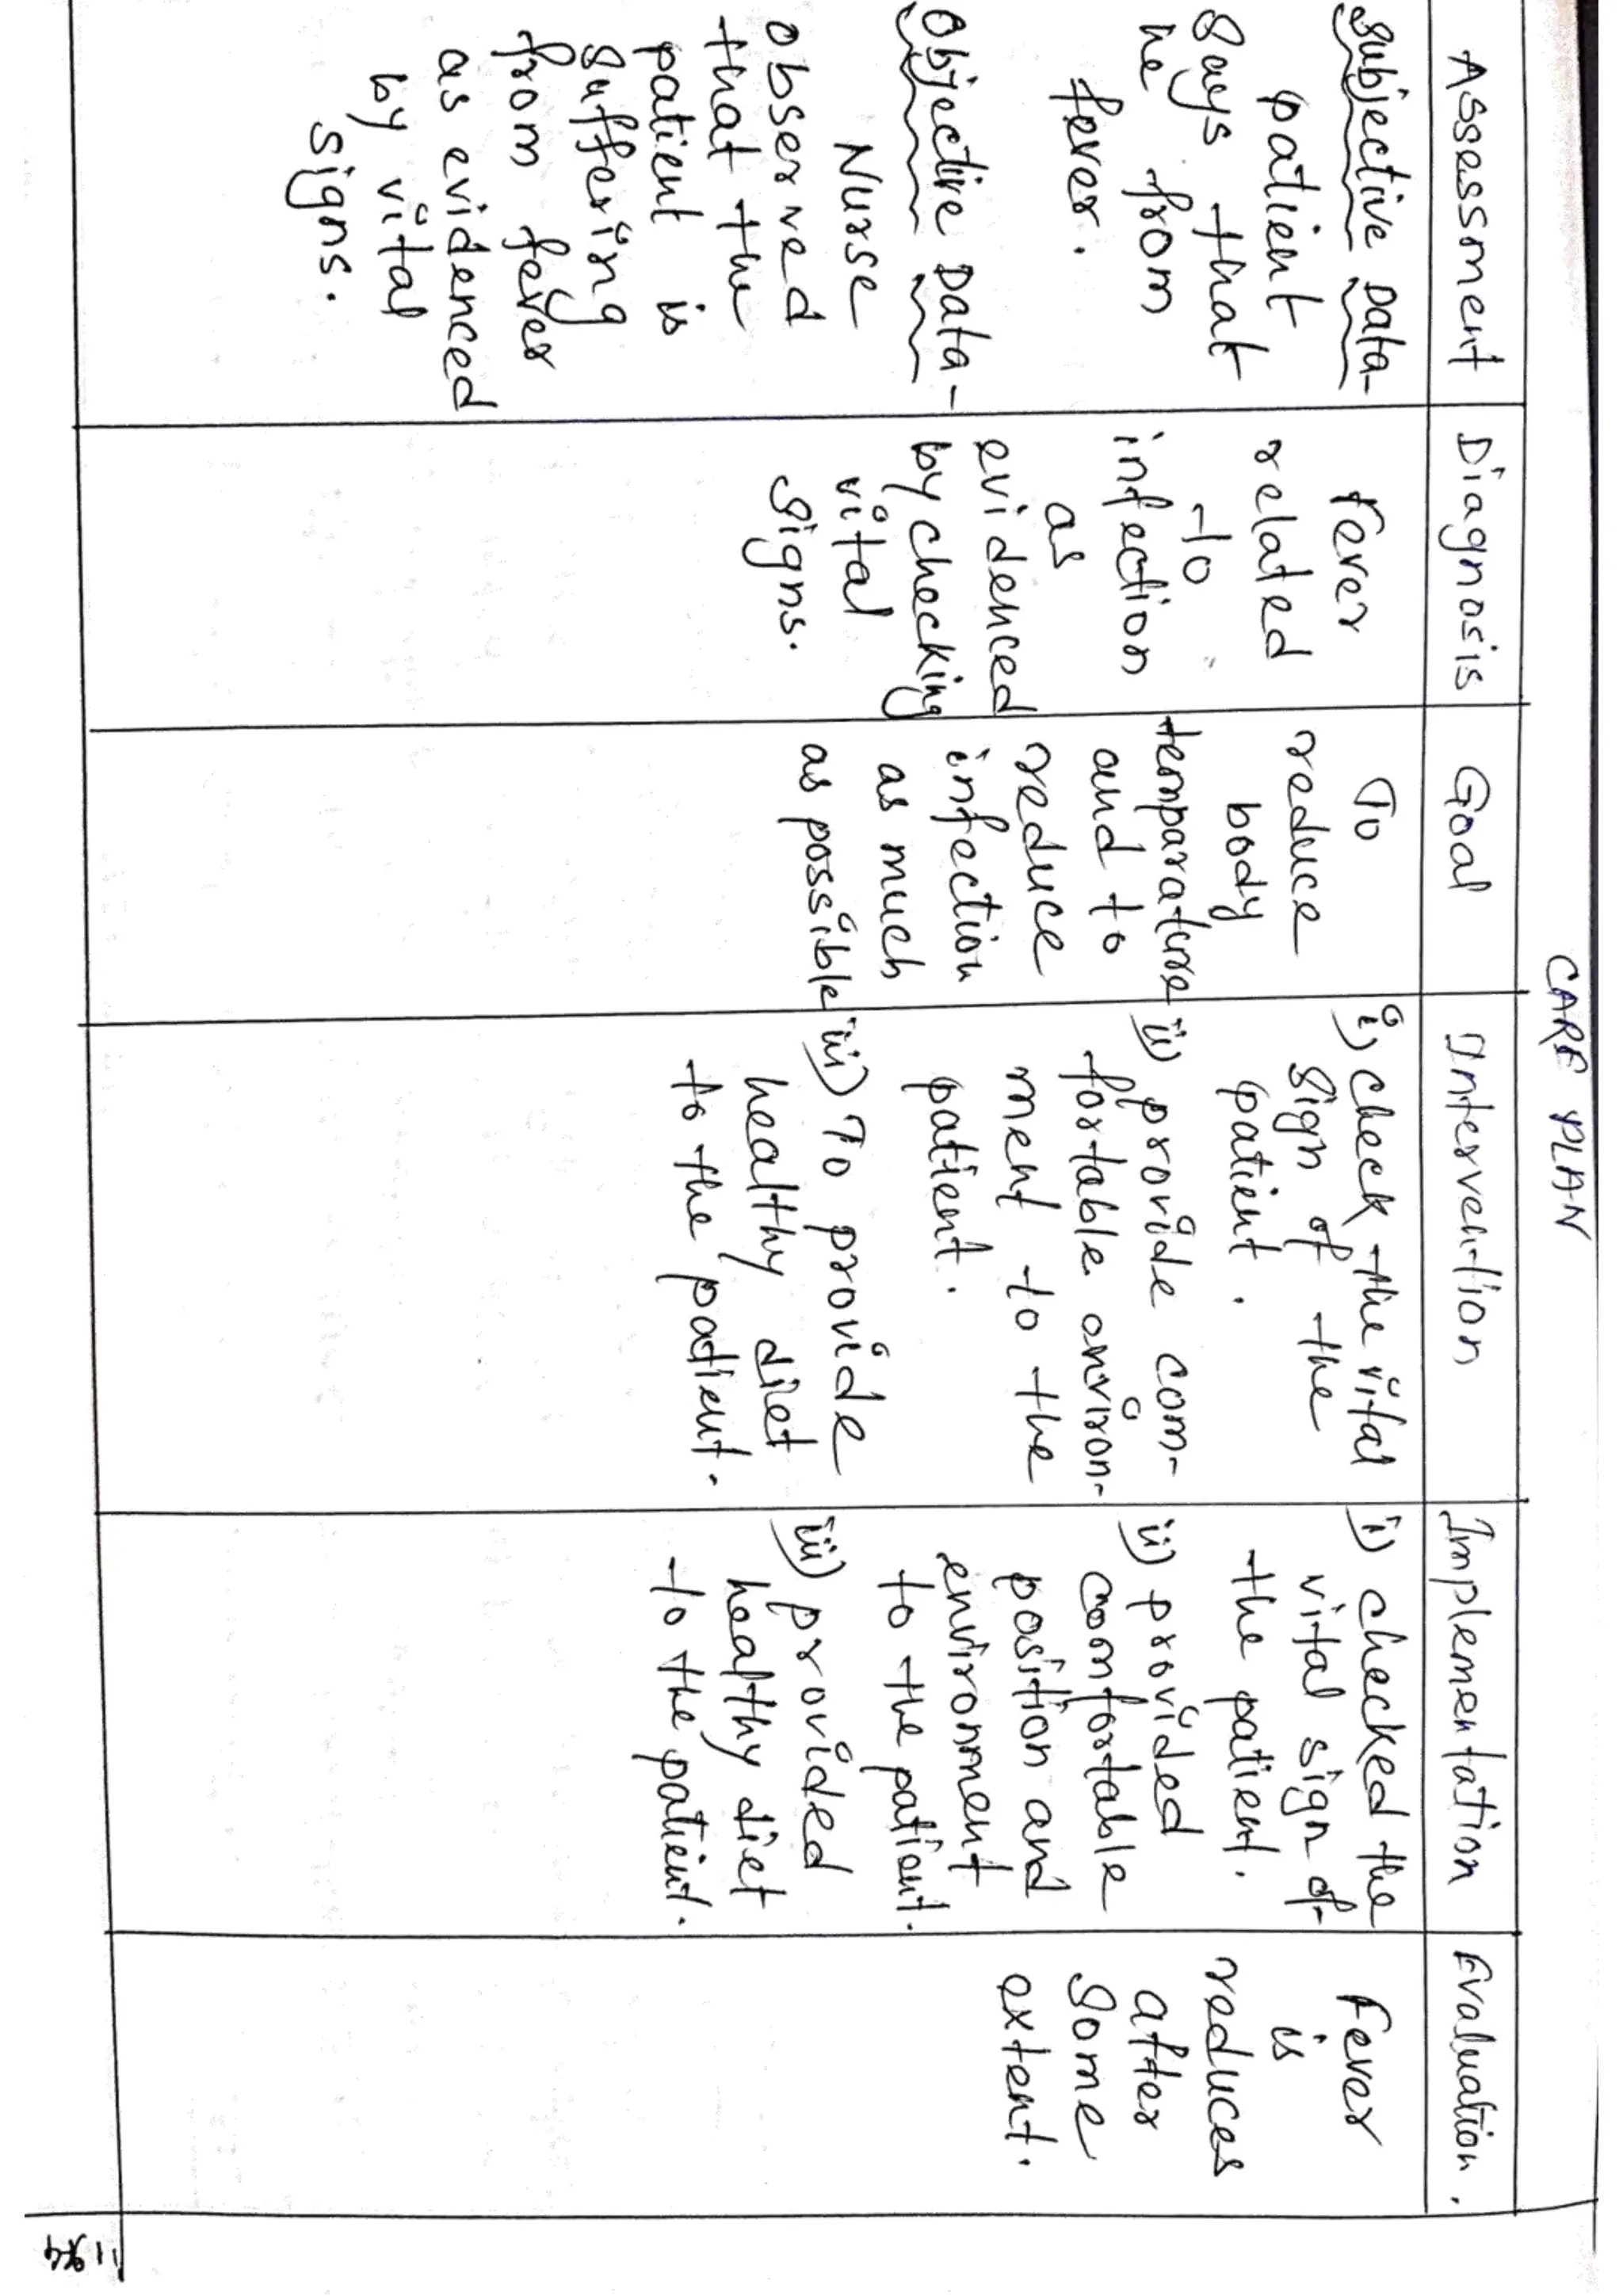 CARE PLAN
Assessment
Subjective Data-
patient
says that
he from
fever.
Objective Data-
Nurse
observed
that the
patient is
suffering
from fever
as evidenced
by vital
signs.
Diagnosis
Fever
related
to
infection
as
evidenced
by checking
vital
signs.
Goal
To
reduce
body
temparature
and to
reduce
infection
as much
as possible
Intervention
i) check the vital
sign of the
patient.
ii) provide com-
fortable environ-
ment to the
patient.
iii) To provide
healthy diet
to the patient.
Implementation
i) checked the
vital sign of
the patient.
ii) provided
comfortable
position and
environment
to the patient.
iii) provided
healthy diet
to the patient.
Evaluation.
Fever
is
reduces
after
some
extent.